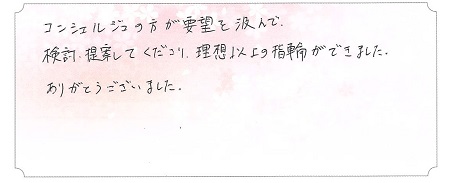 コンシェルジュの方が要望を汲んで、
検討・提案してくださり、理想以上の指輪ができました。
ありがとうございました。